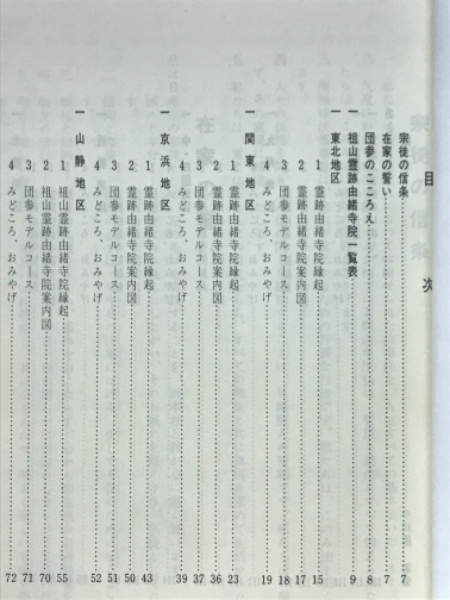 目次
宗徒の信条……7
在家の誓い……7
団参のこころえ……8
一 祖山霊跡由緒寺院一覧表……9
一 東北地区
1 霊跡由緒寺院縁起……15
2 霊跡由緒寺院案内図……17
3 団参モデルコース……18
4 みどころ、おみやげ……19
一 関東地区
1 霊跡由緒寺院縁起……23
2 霊跡由緒寺院案内図……36
3 団参モデルコース……37
4 みどころ、おみやげ……39
一 京浜地区
1 霊跡由緒寺院縁起……43
2 霊跡由緒寺院案内図……50
3 団参モデルコース……51
4 みどころ、おみやげ……52
一 山静地区
1 祖山霊跡由緒寺院縁起……55
2 祖山霊跡由緒寺院案内図……70
3 団参モデルコース……71
4 みどころ、おみやげ……72